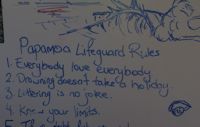 Papamoa Lifeguard Rules
1. Everybody love everybody
2. Drowning doesn't take a holiday.
3. Littering is no joke.
4. Know your limits.
5.